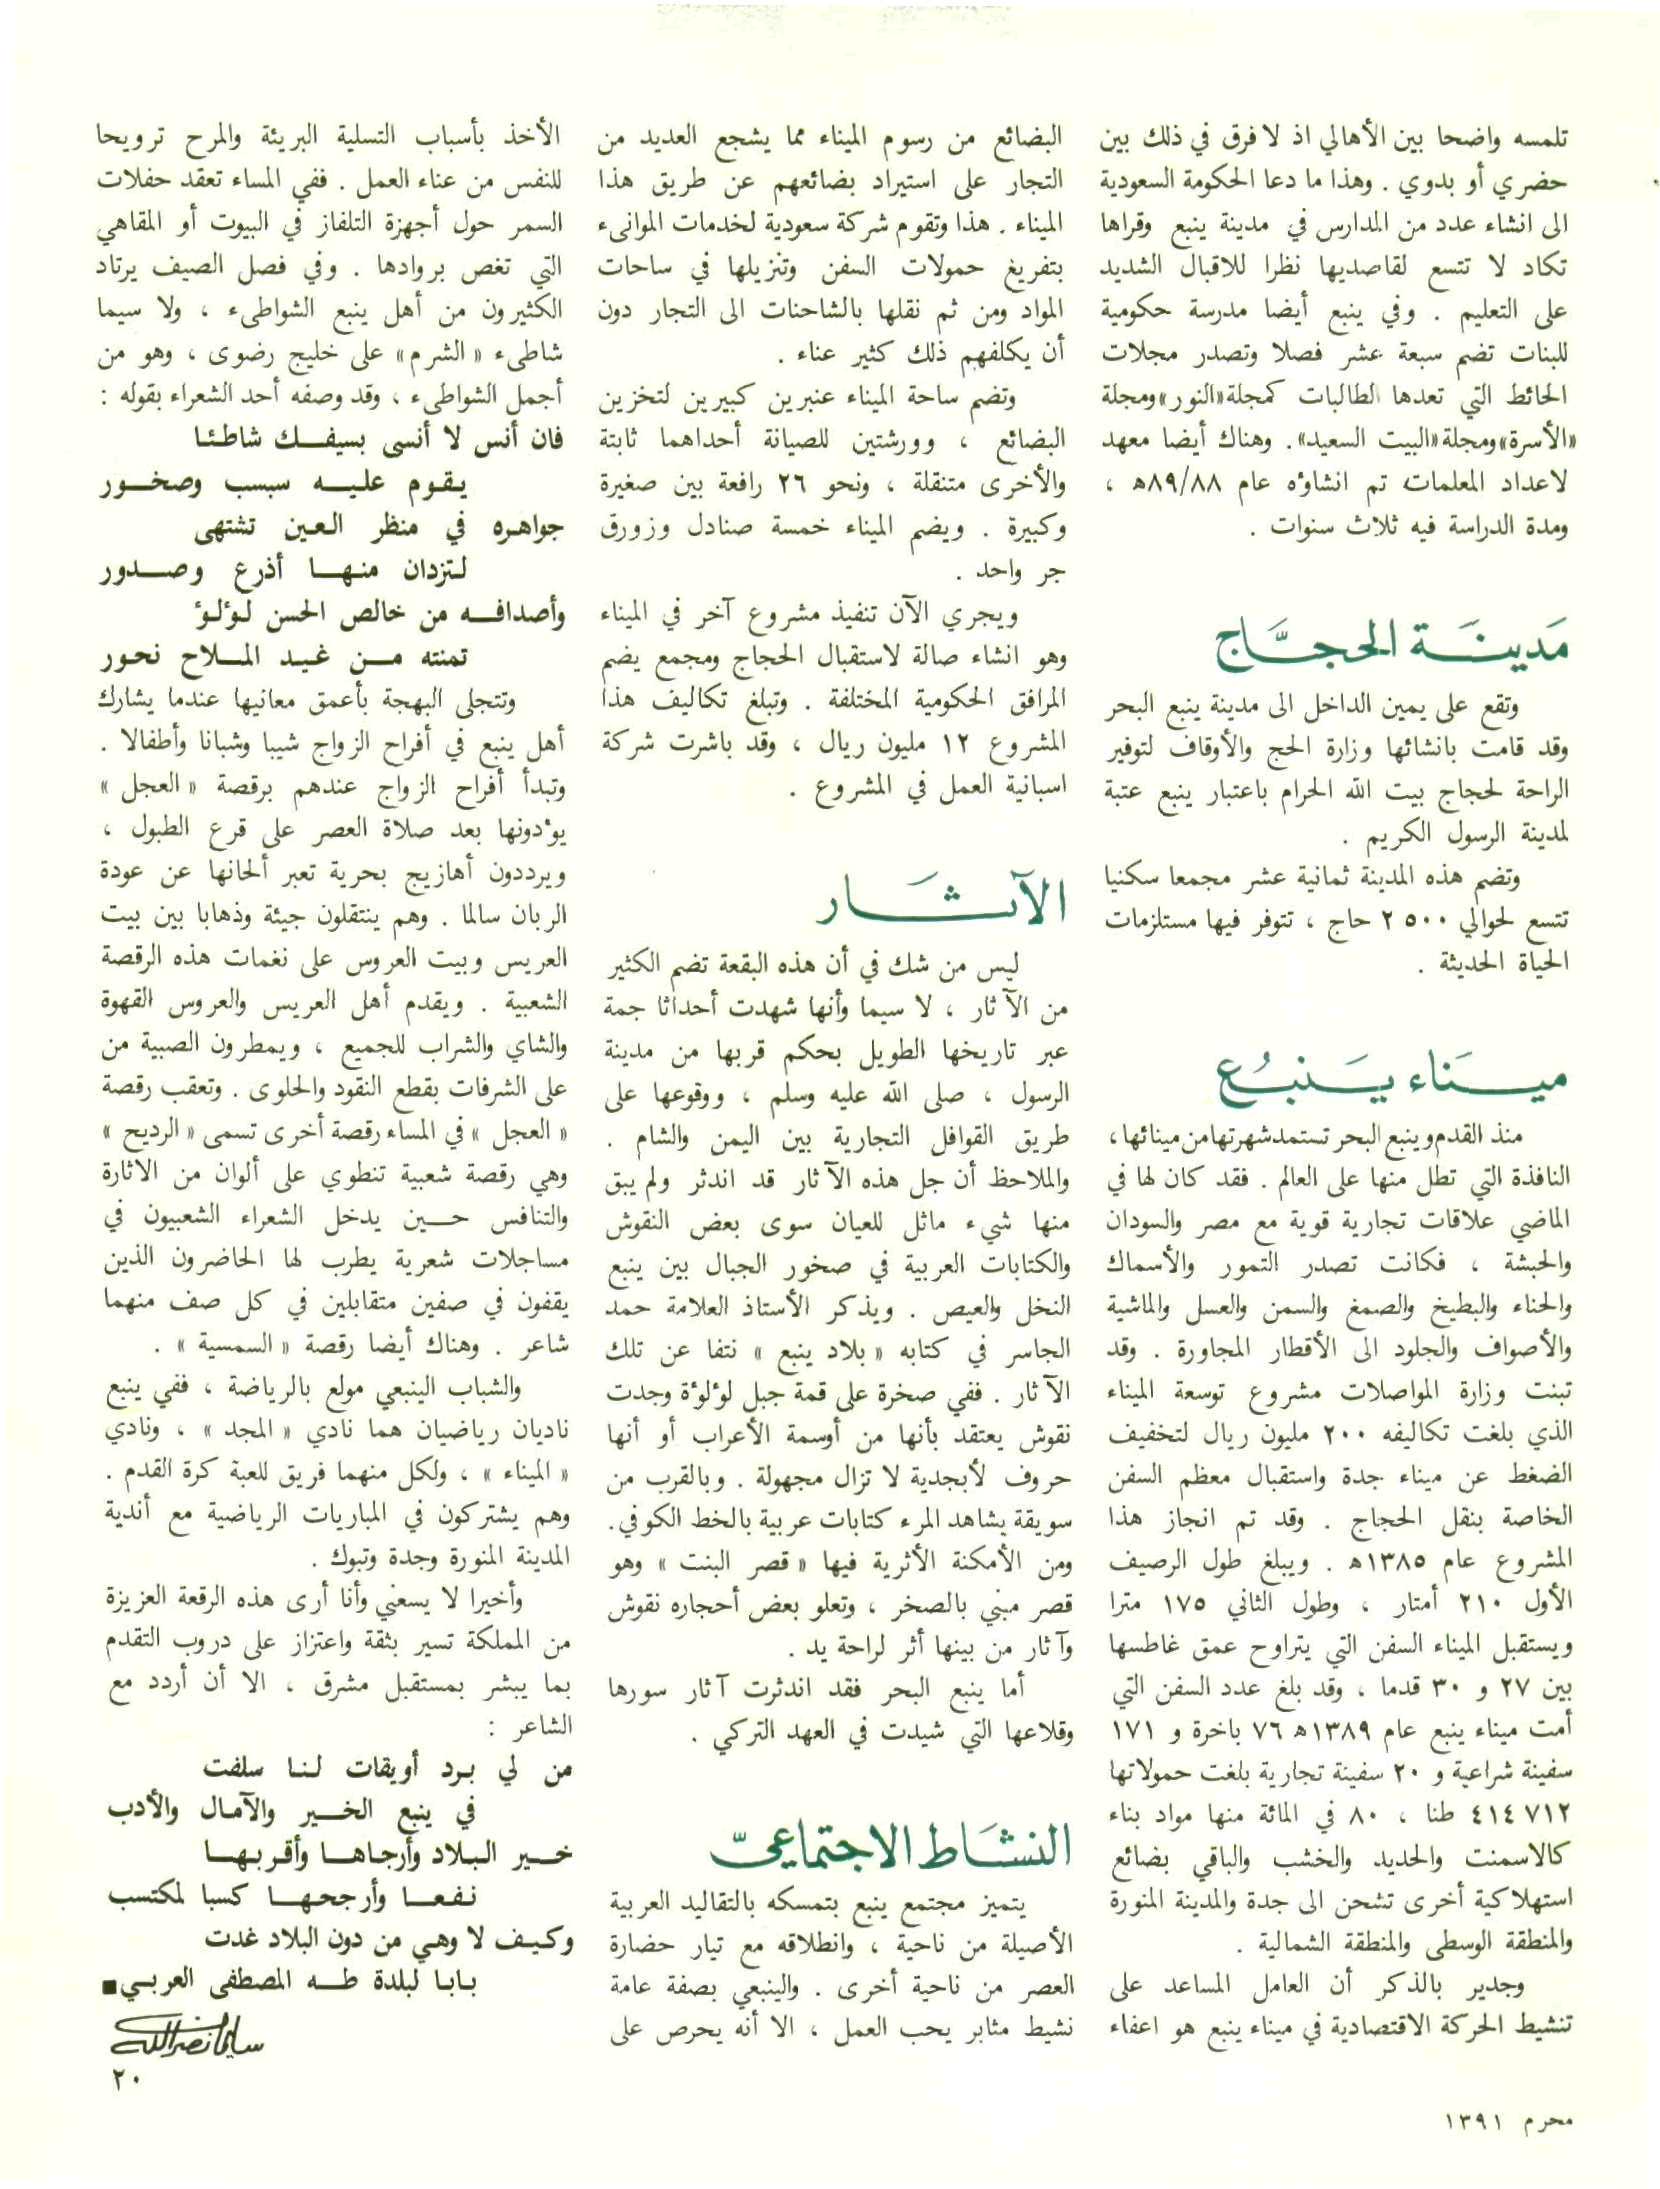 تلمسه واضحا بين الأهالي اذ لا فرق في ذلك بين
حضري أو بدوي . وهذا ما دعا الحكومة السعودية
الى انشاء عدد من المدارس في مدينة ينبع وقراها
تكاد لا تتسع لقاصديها نظرا للاقبال الشديد
على التعليم . وفي ينبع أيضا مدرسة حكومية
للبنات تضم سبعة عشر فصلا وتصدر مجلات
الحائط التي تعدها الطالبات كمجلة «النور» ومجلة
«الأسرة» ومجلة «البيت السعيد». وهناك أيضا معهد
لاعداد المعلمات تم انشاؤه عام ٨٩/٨٨ه ،
ومدة الدراسة فيه ثلاث سنوات .
مَدينَة الحجَّاج
وتقع على يمين الداخل الى مدينة ينبع البحر
وقد قامت بانشائها وزارة الحج والأوقاف لتوفير
الراحة لحجاج بيت الله الحرام باعتبار ينبع عتبة
لمدينة الرسول الكريم .
وتضم هذه المدينة ثمانية عشر مجمعا سكنيا
تتسع لحوالي ٥٠٠ ٢ حاج ، تتوفر فيها مستلزمات
الحياة الحديثة .
ميَناء يَنبُع
منذ القدم وينبع البحر تستمد شهرتها من مينائها،
النافذة التي تطل منها على العالم . فقد كان لها في
الماضي علاقات تجارية قوية مع مصر والسودان
والحبشة ، فكانت تصدر التمور والأسماك
والحناء والبطيخ والصمغ والسمن والعسل والماشية
والأصواف والجلود الى الأقطار المجاورة . وقد
تبنت وزارة المواصلات مشروع توسعة الميناء
الذي بلغت تكاليفه ٢٠٠ مليون ريال لتخفيف
الضغط عن ميناء جدة واستقبال معظم السفن
الخاصة بنقل الحجاج . وقد تم انجاز هذا
المشروع عام ١٣٨٥ه . ويبلغ طول الرصيف
الأول ٢١٠ أمتار ، وطول الثاني ١٧٥ مترا
ويستقبل الميناء السفن التي يتراوح عمق غاطسها
بين ٢٧ و ٣٠ قدما ، وقد بلغ عدد السفن التي
أمت ميناء ينبع عام ١٣٨٩ه ٧٦ باخرة و ١٧١
سفينة شراعية و ٢٠ سفينة تجارية بلغت حمولاتها
٤١٤٧١٢ طنا ، ٨٠ في المائة منها مواد بناء
كالاسمنت والحديد والخشب والباقي بضائع
استهلاكية أخرى تشحن الى جدة والمدينة المنورة
والمنطقة الوسطى والمنطقة الشمالية .
وجدير بالذكر أن العامل المساعد على
تنشيط الحركة الاقتصادية في ميناء ينبع هو اعفاء
البضائع من رسوم الميناء مما يشجع العديد من
التجار على استيراد بضائعهم عن طريق هذا
الميناء . هذا وتقوم شركة سعودية لخدمات الموانىء
بتفريغ حمولات السفن وتنزيلها في ساحات
المواد ومن ثم نقلها بالشاحنات الى التجار دون
أن يكلفهم ذلك كثير عناء .
وتضم ساحة الميناء عنبرين كبيرين لتخزين
البضائع ، وورشتين للصيانة أحداهما ثابتة
والأخرى متنقلة ، ونحو ٢٦ رافعة بين صغيرة
وكبيرة . ويضم الميناء خمسة صنادل وزورق
جر واحد .
ويجري الآن تنفيذ مشروع آخر في الميناء
وهو انشاء صالة لاستقبال الحجاج ومجمع يضم
المرافق الحكومية المختلفة . وتبلغ تكاليف هذا
المشروع ١٢ مليون ريال ، وقد باشرت شركة
اسبانية العمل في المشروع .
الآثَار
ليس من شك في أن هذه البقعة تضم الكثير
من الآثار ، لا سيما وأنها شهدت أحداثا جمة
عبر تاريخها الطويل بحكم قربها من مدينة
الرسول ، صلى الله عليه وسلم ، ووقوعها على
طريق القوافل التجارية بين اليمن والشام .
والملاحظ أن جل هذه الآثار قد اندثر ولم يبق
منها شيء ماثل للعيان سوى بعض النقوش
والكتابات العربية في صخور الجبال بين ينبع
النخل والعيص . ويذكر الأستاذ العلامة حمد
الجاسر في كتابه « بلاد ينبع » نتفا عن تلك
الآثار . ففي صخرة على قمة جبل لؤلؤة وجدت
نقوش يعتقد بأنها من أوسمة الأعراب أو أنها
حروف لأبجدية لا تزال مجهولة . وبالقرب من
سويقة يشاهد المرء كتابات عربية بالخط الكوفي .
ومن الأمكنة الأثرية فيها « قصر البنت » وهو
قصر مبني بالصخر ، وتعلو بعض أحجاره نقوش
وآثار من بينها أثر لراحة يد .
أما ينبع البحر فقد اندثرت آثار سورها
وقلاعها التي شيدت في العهد التركي .
النشَاط الاجتماعيّ
يتميز مجتمع ينبع بتمسكه بالتقاليد العربية
الأصيلة من ناحية ، وانطلاقه مع تيار حضارة
العصر من ناحية أخرى . والينبعي بصفة عامة
نشيط مثابر يحب العمل ، الا أنه يحرص على
الأخذ بأسباب التسلية البريئة والمرح ترويحا
للنفس من عناء العمل . ففي المساء تعقد حفلات
السمر حول أجهزة التلفاز في البيوت أو المقاهي
التي تغص بروادها . وفي فصل الصيف يرتاد
الكثيرون من أهل ينبع الشواطىء ، ولا سيما
شاطىء « الشرم » على خليج رضوى ، وهو من
أجمل الشواطىء ، وقد وصفه أحد الشعراء بقوله :
فان أنس لا أنسى بسيفك شاطئا
يقوم عليه سبسب وصخور
جواهره في منظر العين تشتهى
لتزدان منها أذرع وصدور
وأصدافه من خالص الحسن لؤلؤ
تمنته من غيد الملاح نحور
وتتجلى البهجة بأعمق معانيها عندما يشارك
أهل ينبع في أفراح الزواج شيبا وشبانا وأطفالا .
وتبدأ أفراح الزواج عندهم برقصة « العجل »
يؤدونها بعد صلاة العصر على قرع الطبول ،
ويرددون أهازيج بحرية تعبر ألحانها عن عودة
الربان سالما . وهم ينتقلون جيئة وذهابا بين بيت
العريس وبيت العروس على نغمات هذه الرقصة
الشعبية . ويقدم أهل العريس والعروس القهوة
والشاي والشراب للجميع ، ويمطرون الصبية من
على الشرفات بقطع النقود والحلوى . وتعقب رقصة
« العجل » في المساء رقصة أخرى تسمى « الرديح »
وهي رقصة شعبية تنطوي على ألوان من الاثارة
والتنافس حين يدخل الشعراء الشعبيون في
مساجلات شعرية يطرب لها الحاضرون الذين
يقفون في صفين متقابلين في كل صف منهما
شاعر . وهناك أيضا رقصة « السمسية » .
والشباب الينبعي مولع بالرياضة ، ففي ينبع
ناديان رياضيان هما نادي « المجد » ، ونادي
« الميناء » ، ولكل منهما فريق للعبة كرة القدم .
وهم يشتركون في المباريات الرياضية مع أندية
المدينة المنورة وجدة وتبوك .
وأخيرا لا يسعني وأنا أرى هذه الرقعة العزيزة
من المملكة تسير بثقة واعتزاز على دروب التقدم
بما يبشر بمستقبل مشرق ، الا أن أردد مع
الشاعر :
من لي برد أويقات لنا سلفت
في ينبع الخير والآمال والأدب
خير البلاد وأرجاها وأقربها
نفعا وأرجحها كسبا لمكتسب
وكيف لا وهي من دون البلاد غدت
بابا لبلدة طه المصطفى العربي■
سليمان نصر الله
٢٠
محرم ١٣٩١